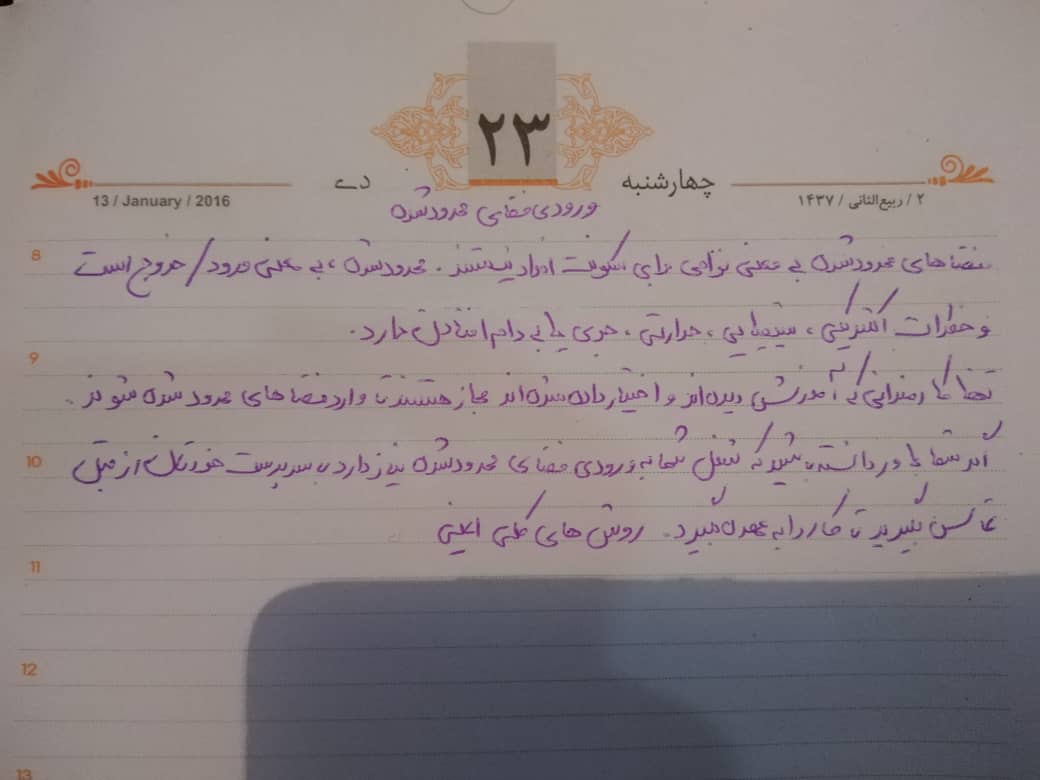 ۲۳
دے
چهارشنبه
13 / January / 2016
۲ / ربیع‌الثانی / ۱۴۳۷
ورودی فضای محدود شده
8
فضاهای محدود شده به معنی نواحی برای سکونت افراد نیستند. محدود شده، به معنی ورود / خروج است
و خطرات الکتریکی، شیمیایی، حرارتی، جوی یا به دام افتادن دارد.
9
تنها کارمندانی که آموزش دیده اند و اختیار داده شده اند مجاز هستند تا وارد فضاهای محدود شده شوند.
10
اگر شما باور داشته باشید که شغل شما به ورودی فضای محدود شده نیاز دارد با سرپرست خودتان از قبل
تماس بگیرید تا کار را به عهده گیرد. روش های کلی ایمنی
11
12
13